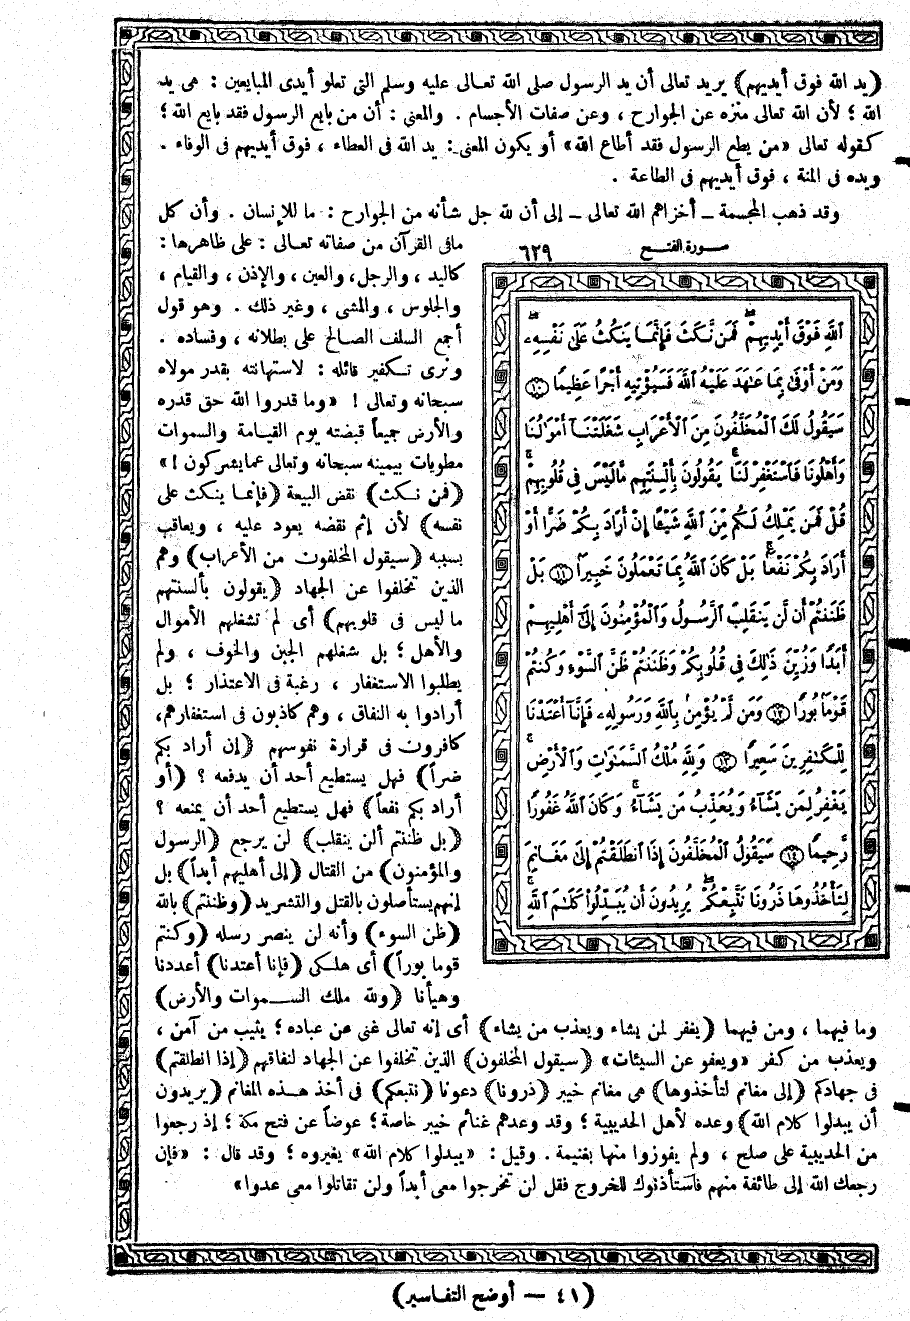 (يد الله فوق أيديهم) يريد تعالى أن يد الرسول صلى الله تعالى عليه وسلم التى تعلو أيدى المبايعين : هى يد
الله ؛ لأن الله تعالى منزه عن الجوارح ، وعن صفات الأجسام . والمعنى : أن من بايع الرسول فقد بايع الله ؛
كقوله تعالى «من يطع الرسول فقد أطاع الله» أو يكون المعنى : يد الله فى العطاء ، فوق أيديهم فى الوفاء .
ويده فى المنة ، فوق أيديهم فى الطاعة .
وقد ذهب المجسمة ـ أخزاهم الله تعالى ـ إلى أن لله جل شأنه من الجوارح : ما للإنسان . وأن كل
مافى القرآن من صفاته تعالى : على ظاهرها :
كاليد ، والرجل، والعين ، والإذن ، والقيام ،
والجلوس ، والمشى ، وغير ذلك . وهو قول
أجمع السلف الصالح على بطلانه ، وفساده .
ونرى تكفير قائله : لاستهانته بقدر مولاه
سبحانه وتعالى ! «وما قدروا الله حق قدره
والأرض جميعاً قبضته يوم القيامة والسموات
مطويات بيمينه سبحانه وتعالى عما يشركون !»
(فمن نكث) نقض البيعة (فإنما ينكث على
نفسه) لأن إثم نقضه يعود عليه ، ويعاقب
بسببه (سيقول المخلفون من الأعراب) وهم
الذين تخلفوا عن الجهاد (يقولون بألسنتهم
ما ليس فى قلوبهم) أى لم تشغلهم الأموال
والأهل ؛ بل شغلهم الجبن والخوف ، ولم
يطلبوا الاستغفار ، رغبة فى الاعتذار ؛ بل
أرادوا به النفاق ، وهم كاذبون فى استغفارهم،
كافرون فى قرارة نفوسهم (إن أراد بكم
ضراً) فهل يستطيع أحد أن يدفعه ؟ (أو
أراد بكم نفعاً) فهل يستطيع أحد أن يمنعه ؟
(بل ظننتم ألن ينقلب) لن يرجع (الرسول
والمؤمنون) من القتال (إلى أهليهم أبداً) بل
إنهم يستأصلون بالقتل والتشريد (وظننتم) بالله
(ظن السوء) وأنه لن ينصر رسله (وكنتم
قوما بوراً) أى هلكى (فإنا أعتدنا) أعددنا
وهيأنا (ولله ملك السموات والأرض)
سورة الفتح ٦٢٩
ٱللَّهِ فَوْقَ أَيْدِيهِمْ ۚ فَمَن نَّكَثَ فَإِنَّمَا يَنكُثُ عَلَىٰ نَفْسِهِۦ ۖ
وَمَنْ أَوْفَىٰ بِمَا عَـٰهَدَ عَلَيْهُ ٱللَّهَ فَسَيُؤْتِيهِ أَجْرًا عَظِيمًا ١٠
سَيَقُولُ لَكَ ٱلْمُخَلَّفُونَ مِنَ ٱلْأَعْرَابِ شَغَلَتْنَآ أَمْوَٰلُنَا
وَأَهْلُونَا فَٱسْتَغْفِرْ لَنَا ۚ يَقُولُونَ بِأَلْسِنَتِهِم مَّا لَيْسَ فِى قُلُوبِهِمْ ۚ
قُلْ فَمَن يَمْلِكُ لَكُم مِّنَ ٱللَّهِ شَيْـًٔا إِنْ أَرَادَ بِكُمْ ضَرًّا أَوْ
أَرَادَ بِكُمْ نَفْعًۢا ۚ بَلْ كَانَ ٱللَّهُ بِمَا تَعْمَلُونَ خَبِيرًۢا ١١ بَلْ
ظَنَنتُمْ أَن لَّن يَنقَلِبَ ٱلرَّسُولُ وَٱلْمُؤْمِنُونَ إِلَىٰٓ أَهْلِيهِمْ
أَبَدًا وَزُيِّنَ ذَٰلِكَ فِى قُلُوبِكُمْ وَظَنَنتُمْ ظَنَّ ٱلسَّوْءِ وَكُنتُمْ
قَوْمًۢا بُورًا ١٢ وَمَن لَّمْ يُؤْمِنۢ بِٱللَّهِ وَرَسُولِهِۦ فَإِنَّآ أَعْتَدْنَا
لِلْكَـٰفِرِينَ سَعِيرًا ١٣ وَلِلَّهِ مُلْكُ ٱلسَّمَـٰوَٰتِ وَٱلْأَرْضِ ۚ
يَغْفِرُ لِمَن يَشَآءُ وَيُعَذِّبُ مَن يَشَآءُ ۚ وَكَانَ ٱللَّهُ غَفُورًا
رَّحِيمًا ١٤ سَيَقُولُ ٱلْمُخَلَّفُونَ إِذَا ٱنطَلَقْتُمْ إِلَىٰ مَغَانِمَ
لِتَأْخُذُوهَا ذَرُونَا نَتَّبِعْكُمْ ۖ يُرِيدُونَ أَن يُبَدِّلُوا۟ كَلَـٰمَ ٱللَّهِ ۚ
وما فيهما ، ومن فيهما (يغفر لمن يشاء ويعذب من يشاء) أى إنه تعالى غنى عن عباده ؛ يثيب من آمن ،
ويعذب من كفر «ويعفو عن السيئات» (سيقول المخلفون) الذين تخلفوا عن الجهاد لنفاقهم (إذا انطلقتم)
فى جهادكم (إلى مغانم لتأخذوها) هى مغانم خيبر (ذرونا) دعونا (نتبعكم) فى أخذ هذه المغانم (يريدون
أن يبدلوا كلام الله) وعده لأهل الحديبية ؛ وقد وعدهم غنائم خيبر خاصة ؛ عوضاً عن فتح مكة ؛ إذ رجعوا
من الحديبية على صلح ، ولم يفوزوا منها بغنيمة . وقيل : «يبدلوا كلام الله» يغيروه ؛ وقد قال : «فإن
رجعك الله إلى طائفة منهم فاستأذنوك للخروج فقل لن تخرجوا معى أبداً ولن تقاتلوا معى عدوا»
(٤١ — أوضح التفاسير)